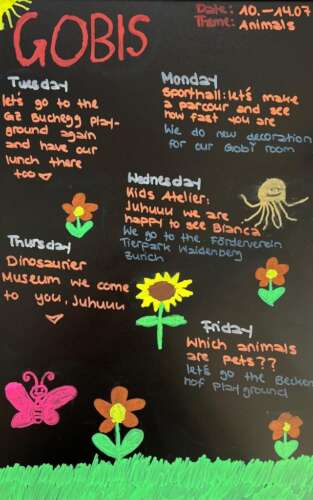 GOBIS
Date: 10.-14.07
Theme: Animals
Monday
Sporthall: let's make
a parcour and see
how fast you are
We do new decoration
for our Gobi room
Tuesday
let's go to the
GZ Buchegg Play-
ground again
and have our
lunch there
too
Wednesday
Kids Atelier:
Juhuuu we are
happy to see Bianca
We go to the Förderverein
Tierpark Waidenberg
Zurich
Thursday
Dinosaurier
Museum we come
to you, Juhuuu
Friday
Which animals
are pets??
let's go the Becken
hof playground